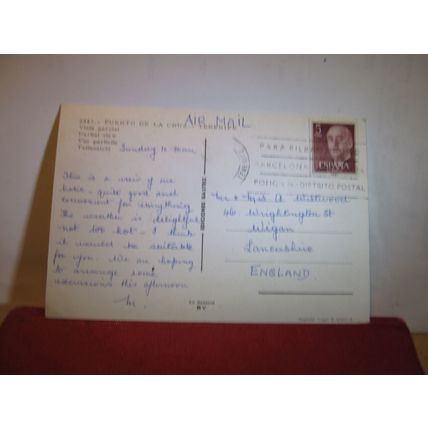 AIR MAIL
2441 - PUERTO DE LA CRUZ - TENERIFE
Vista parcial
Partial view
Vue partielle
Teilansicht
Sunday 10 a.m.
This is a view of our
hotel - quite good and
convenient for everything.
The weather is delightful
not too hot - I think
it would be suitable
for you. We are hoping
to arrange some
excursions this afternoon
M.
EDICIONES
5
ESPAÑA
PARA BILBAO
BARCELONA
PONGA Nº DISTRITO POSTAL
Mr & Mrs A
46 Wrightington St
Wigan
Lancashire
ENGLAND
BY